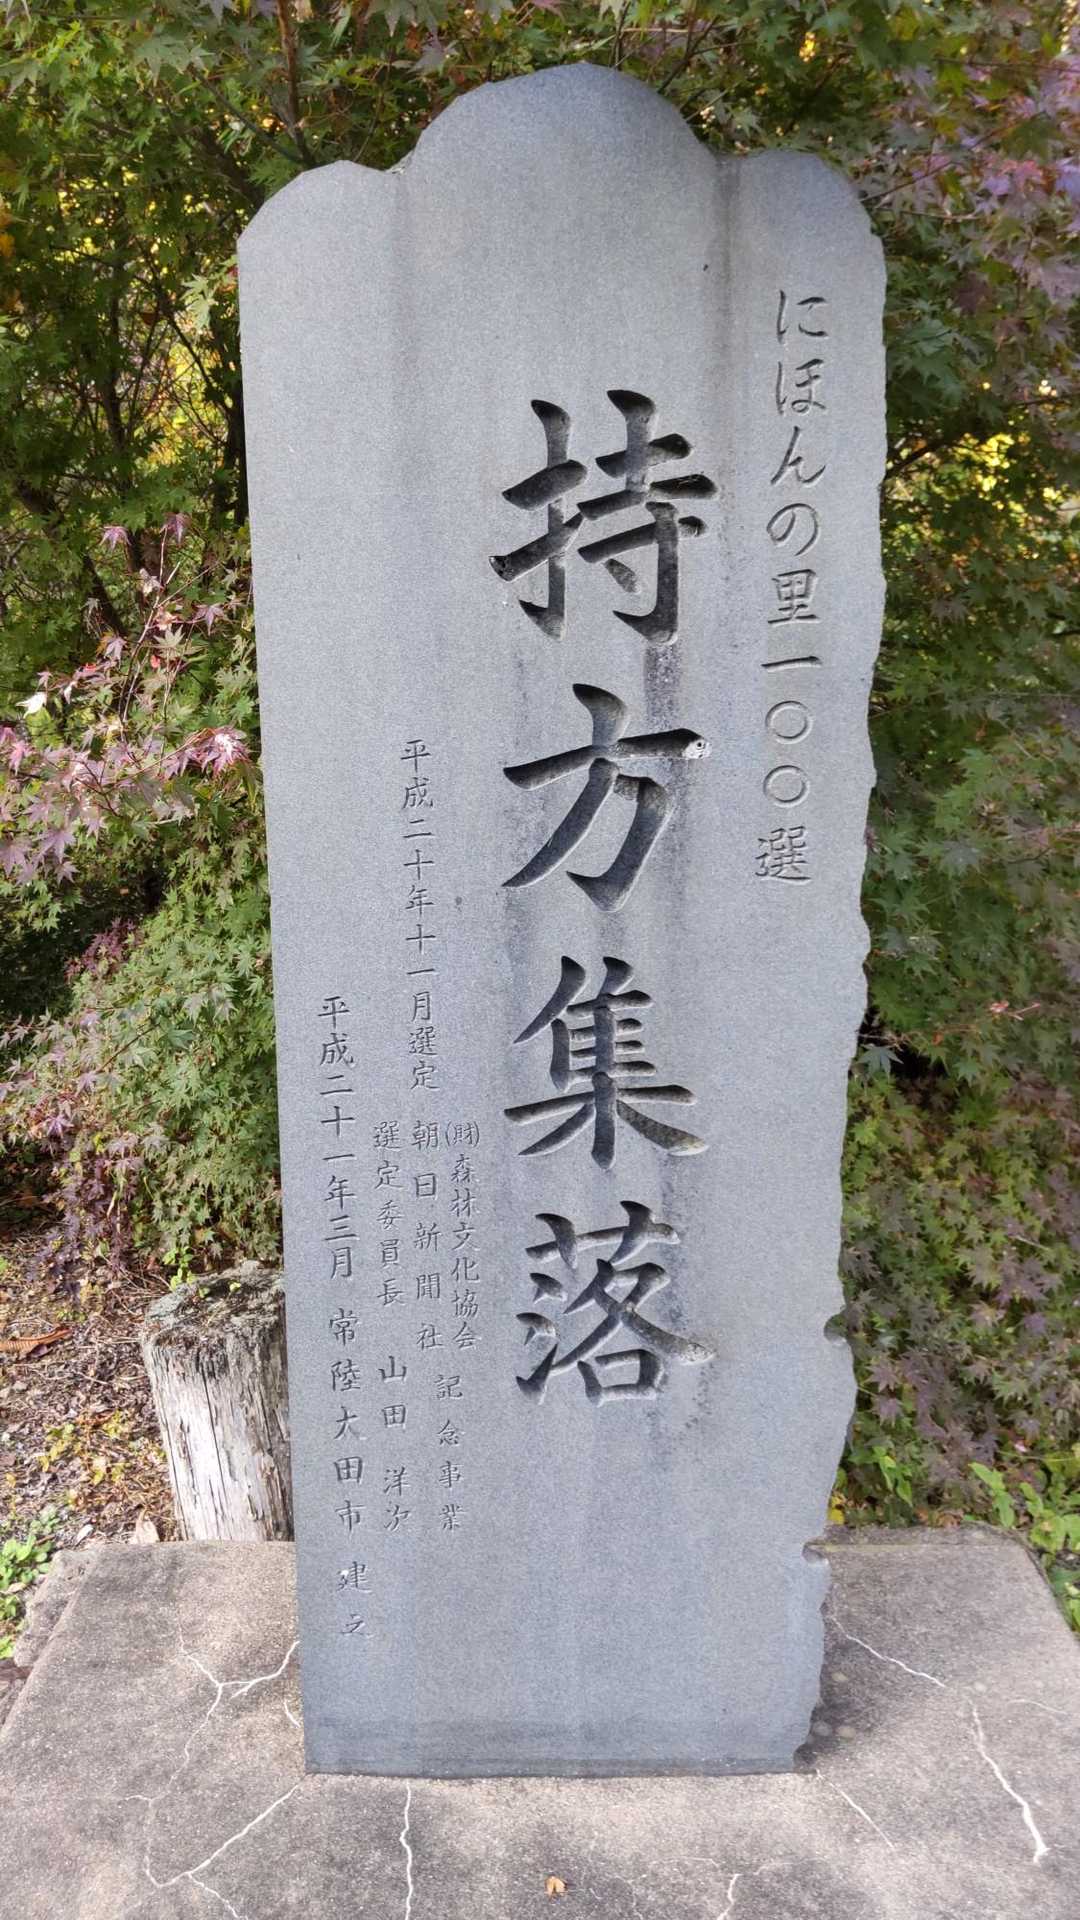 にほんの里一〇〇選
持方集落
平成二十年十一月選定
(財)森林文化協会
朝日新聞社
記念事業
選定委員長 山田洋次
平成二十一年三月 常陸大田市 建之